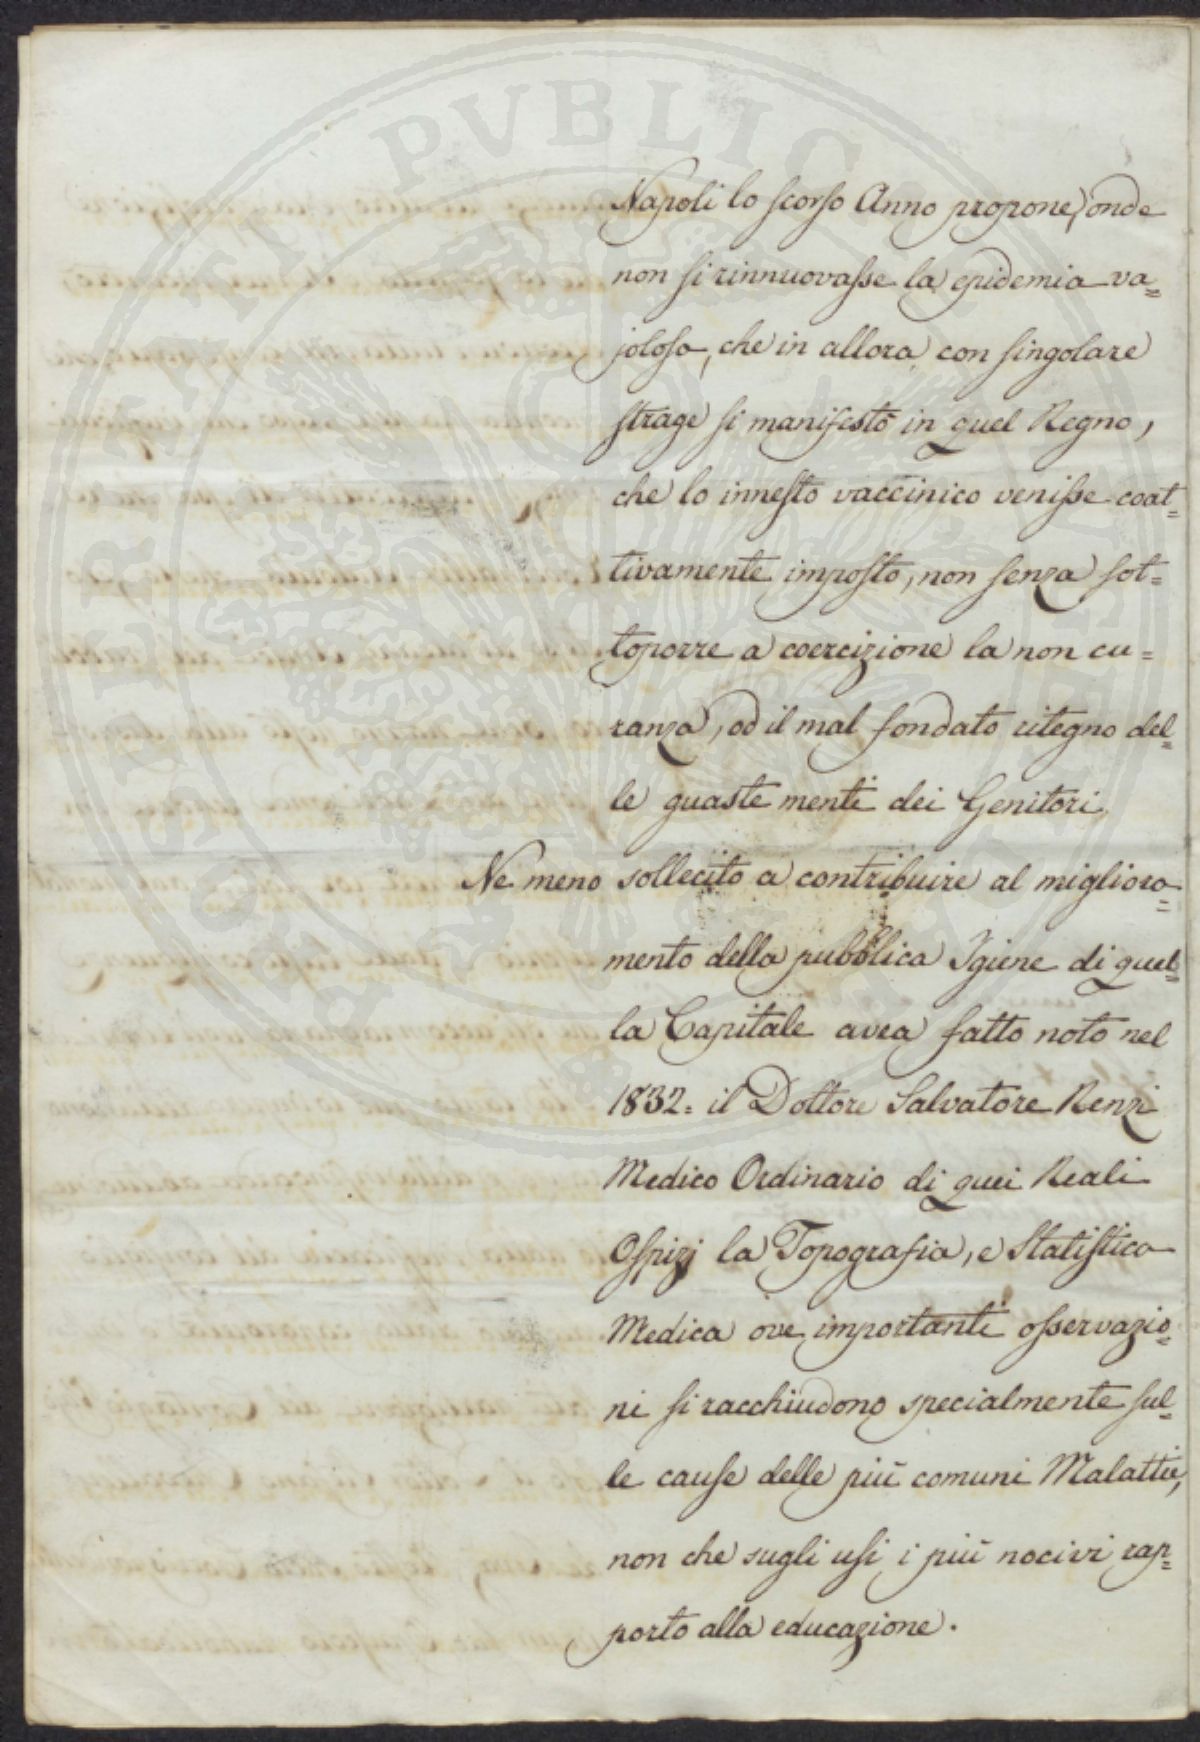 Napoli lo scorso Anno propone, onde
non si rinnuovasse la epidemia va=
jolosa, che in allora con singolare
strage si manifestò in quel Regno,
che lo innesto vaccinico venisse coat=
tivamente imposto, non senza sot=
toporre a coercizione la non cu=
ranza, od il mal fondato ritegno del=
le guaste menti dei Genitori.
Ne meno sollecito a contribuire al migliora=
mento della pubblica Igiene di quel=
la Capitale avea fatto noto nel
1832= il Dottore Salvatore Renzi
Medico Ordinario di quei Reali
Ospizj la Topografia, e Statistica
Medica ove importanti osservazio=
ni si racchiudono specialmente sul=
le cause delle più comuni Malattie,
non che sugli usi i più nocivi rap=
porto alla educazione.